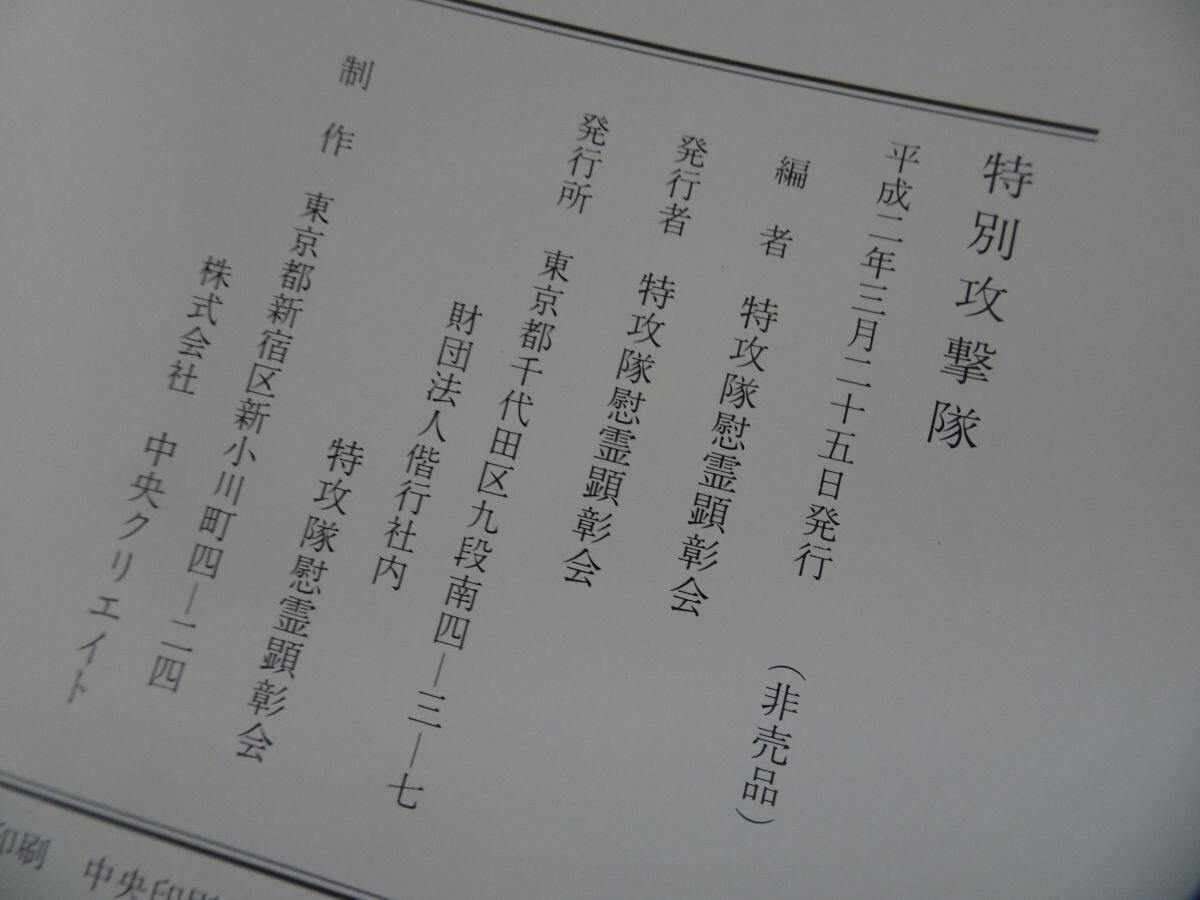 特別攻撃隊
平成二年三月二十五日発行
(非売品)
編者 特攻隊慰霊顕彰会
発行者 特攻隊慰霊顕彰会
発行所 東京都千代田区九段南四―三―七
財団法人偕行社内
特攻隊慰霊顕彰会
制作 東京都新宿区新小川町四―二四
株式会社 中央クリエイト
印刷 中央印刷